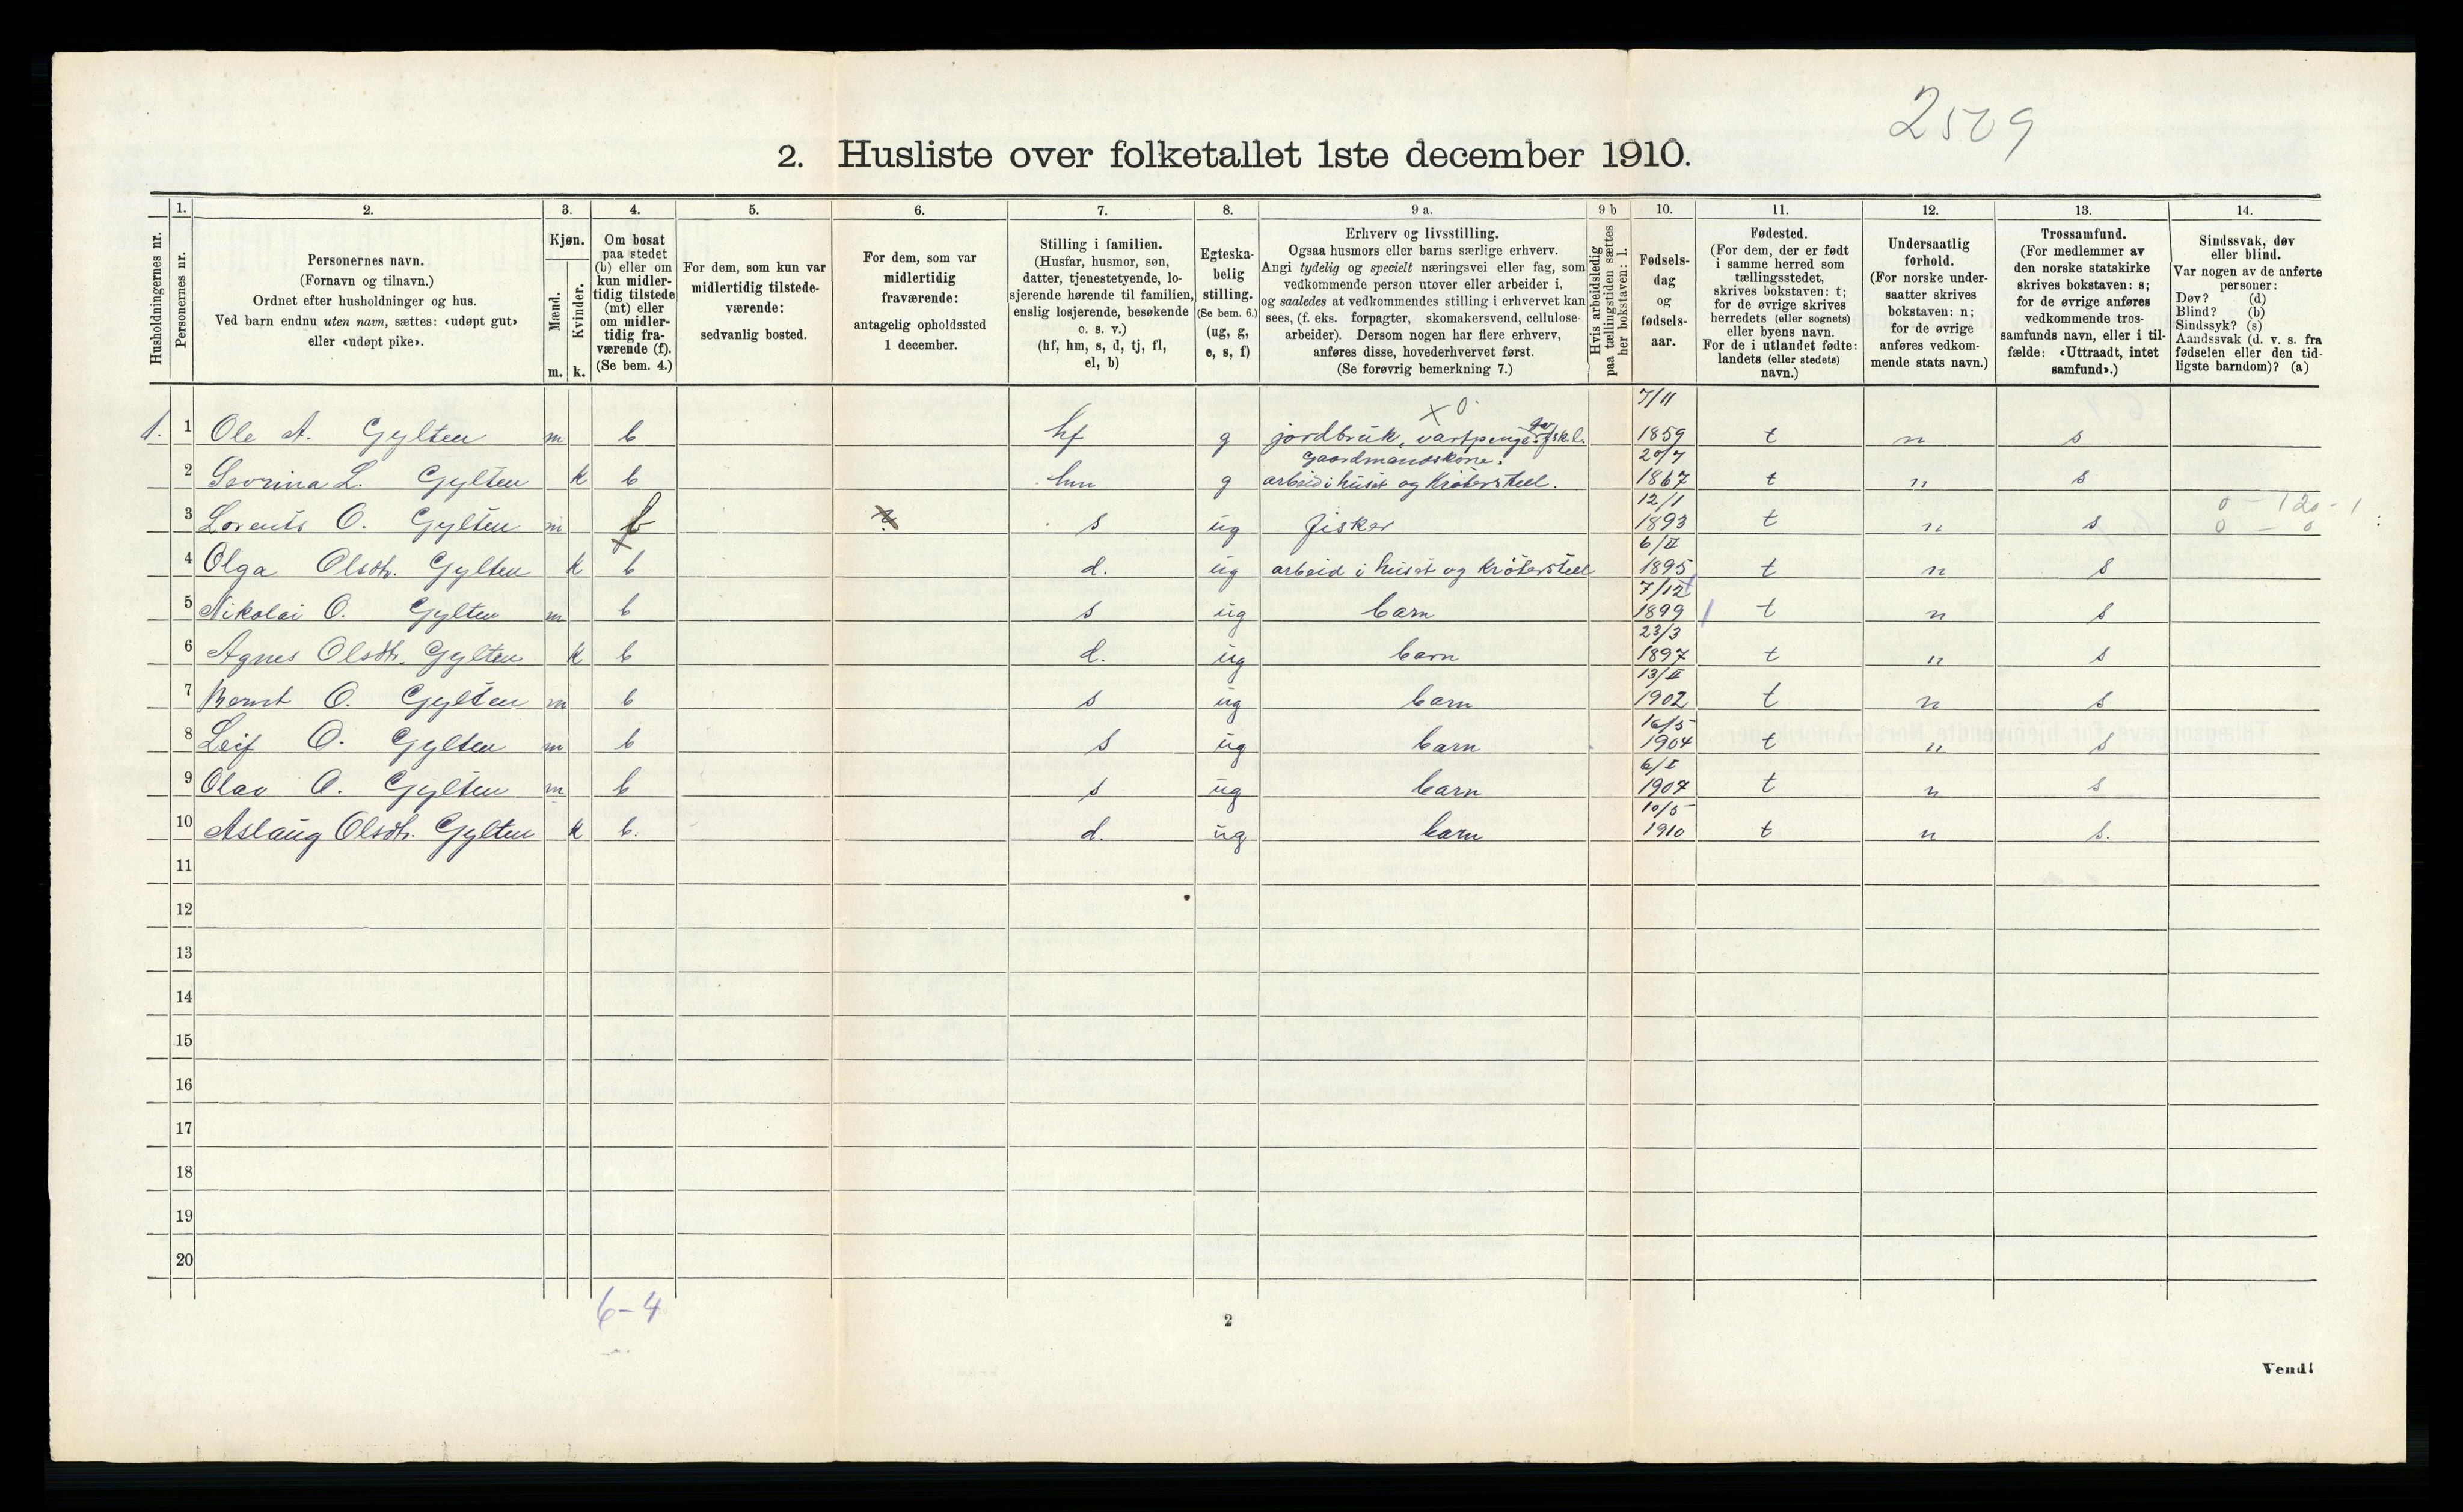 2509
2. Husliste over folketallet 1ste december 1910.
Husholdningernes nr.
1.
Personernes nr.
2.
Personernes navn.
(Fornavn og tilnavn.)
Ordnet efter husholdninger og hus.
Ved barn endnu uten navn, sættes: «udøpt gut»
eller «udøpt pike».
3.
Kjøn.
Mænd.
Kvinder.
m. k.
4.
Om bosat
paa stedet
(b) eller om
kun midler-
tidig tilstede
(mt) eller
om midler-
tidig fra-
værende (f).
(Se bem. 4.)
5.
For dem, som kun var
midlertidig tilstede-
værende:
sedvanlig bosted.
6.
For dem, som var
midlertidig
fraværende:
antagelig opholdssted
1 december.
7.
Stilling i familien.
(Husfar, husmor, søn,
datter, tjenestetyende, lo-
sjerende hørende til familien,
enslig losjerende, besøkende
o. s. v.)
(hf, hm, s, d, tj, fl,
el, b)
8.
Egteska-
belig
stilling.
(Se bem. 6.)
(ug, g,
e, s, f)
9 a.
Erhverv og livsstilling.
Ogsaa husmors eller barns særlige erhverv.
Angi tydelig og specielt næringsvei eller fag, som
vedkommende person utøver eller arbeider i,
og saaledes at vedkommendes stilling i erhvervet kan
sees, (f. eks. forpagter, skomakersvend, cellulose-
arbeider). Dersom nogen har flere erhverv,
anføres disse, hovederhvervet først.
(Se forøvrig bemerkning 7.)
9 b
Hvis arbeidsledig
paa tællingstiden sættes
her bokstaven: l.
10.
Fødsels-
dag
og
fødsels-
aar.
11.
Fødested.
(For dem, der er født
i samme herred som
tællingsstedet,
skrives bokstaven: t;
for de øvrige skrives
herredets (eller sognets)
eller byens navn.
For de i utlandet fødte:
landets (eller stedets)
navn.)
12.
Undersaatlig
forhold.
(For norske under-
saatter skrives
bokstaven: n;
for de øvrige
anføres vedkom-
mende stats navn.)
13.
Trossamfund.
(For medlemmer av
den norske statskirke
skrives bokstaven: s;
for de øvrige anføres
vedkommende tros-
samfunds navn, eller i til-
fælde: «Uttraadt, intet
samfund».)
14.
Sindssvak, døv
eller blind.
Var nogen av de anførte
personer:
Døv? (d)
Blind? (b)
Sindssyk? (s)
Aandssvak (d. v. s. fra
fødselen eller den tid-
ligste barndom)? (a)
X 0 7/11
1. 1 Ole A. Gylten m b hf g jordbruk, 1859 t n s
gaardmandskone. 20/7
2 Sevrina L. Gylten k b hm g arbeid i huset og Krøtersteel. 1867 t n s
12/1 0 - 120 - 1
3 Lorents O. Gylten m b s ug fisker 1893 t n s 0 - 0
6/II
4 Olga Olsdtr. Gylten k b d. ug arbeid i huset og Krøtersteel 1895 t n s
7/12
5 Nikolai O. Gylten m b s ug barn 1899 t n s
23/3
6 Agnes Olsdtr. Gylten k b d. ug barn 1897 t n s
13/II
7 Bernt O. Gylten m b s ug barn 1902 t n s
16/5
8 Leif O. Gylten m b s ug barn 1904 t n s
6/I
9 Olav O. Gylten m b s ug barn 1907 t n s
10/5
10 Aslaug Olsdtr. Gylten k b. d. ug barn 1910 t n s.
11
12
13
14
15
16
17
18
19
20
6-4
2
Vend!